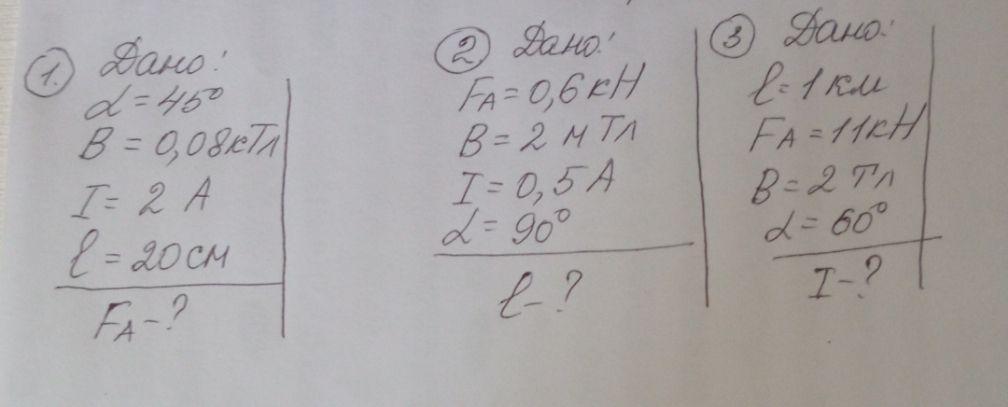 1. Дано:
α = 45°
B = 0,08кТл
I = 2 А
l = 20см
FА – ?
2 Дано:
FА = 0,6 кН
B = 2 мТл
I = 0,5 А
α = 90°
l – ?
3 Дано:
l = 1 км
FА = 11кН
B = 2 Тл
α = 60°
I – ?